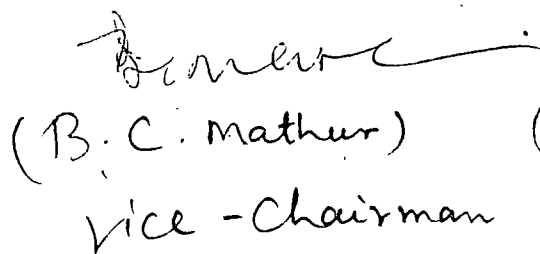 (B. C. Mathur) (
Vice - Chairman